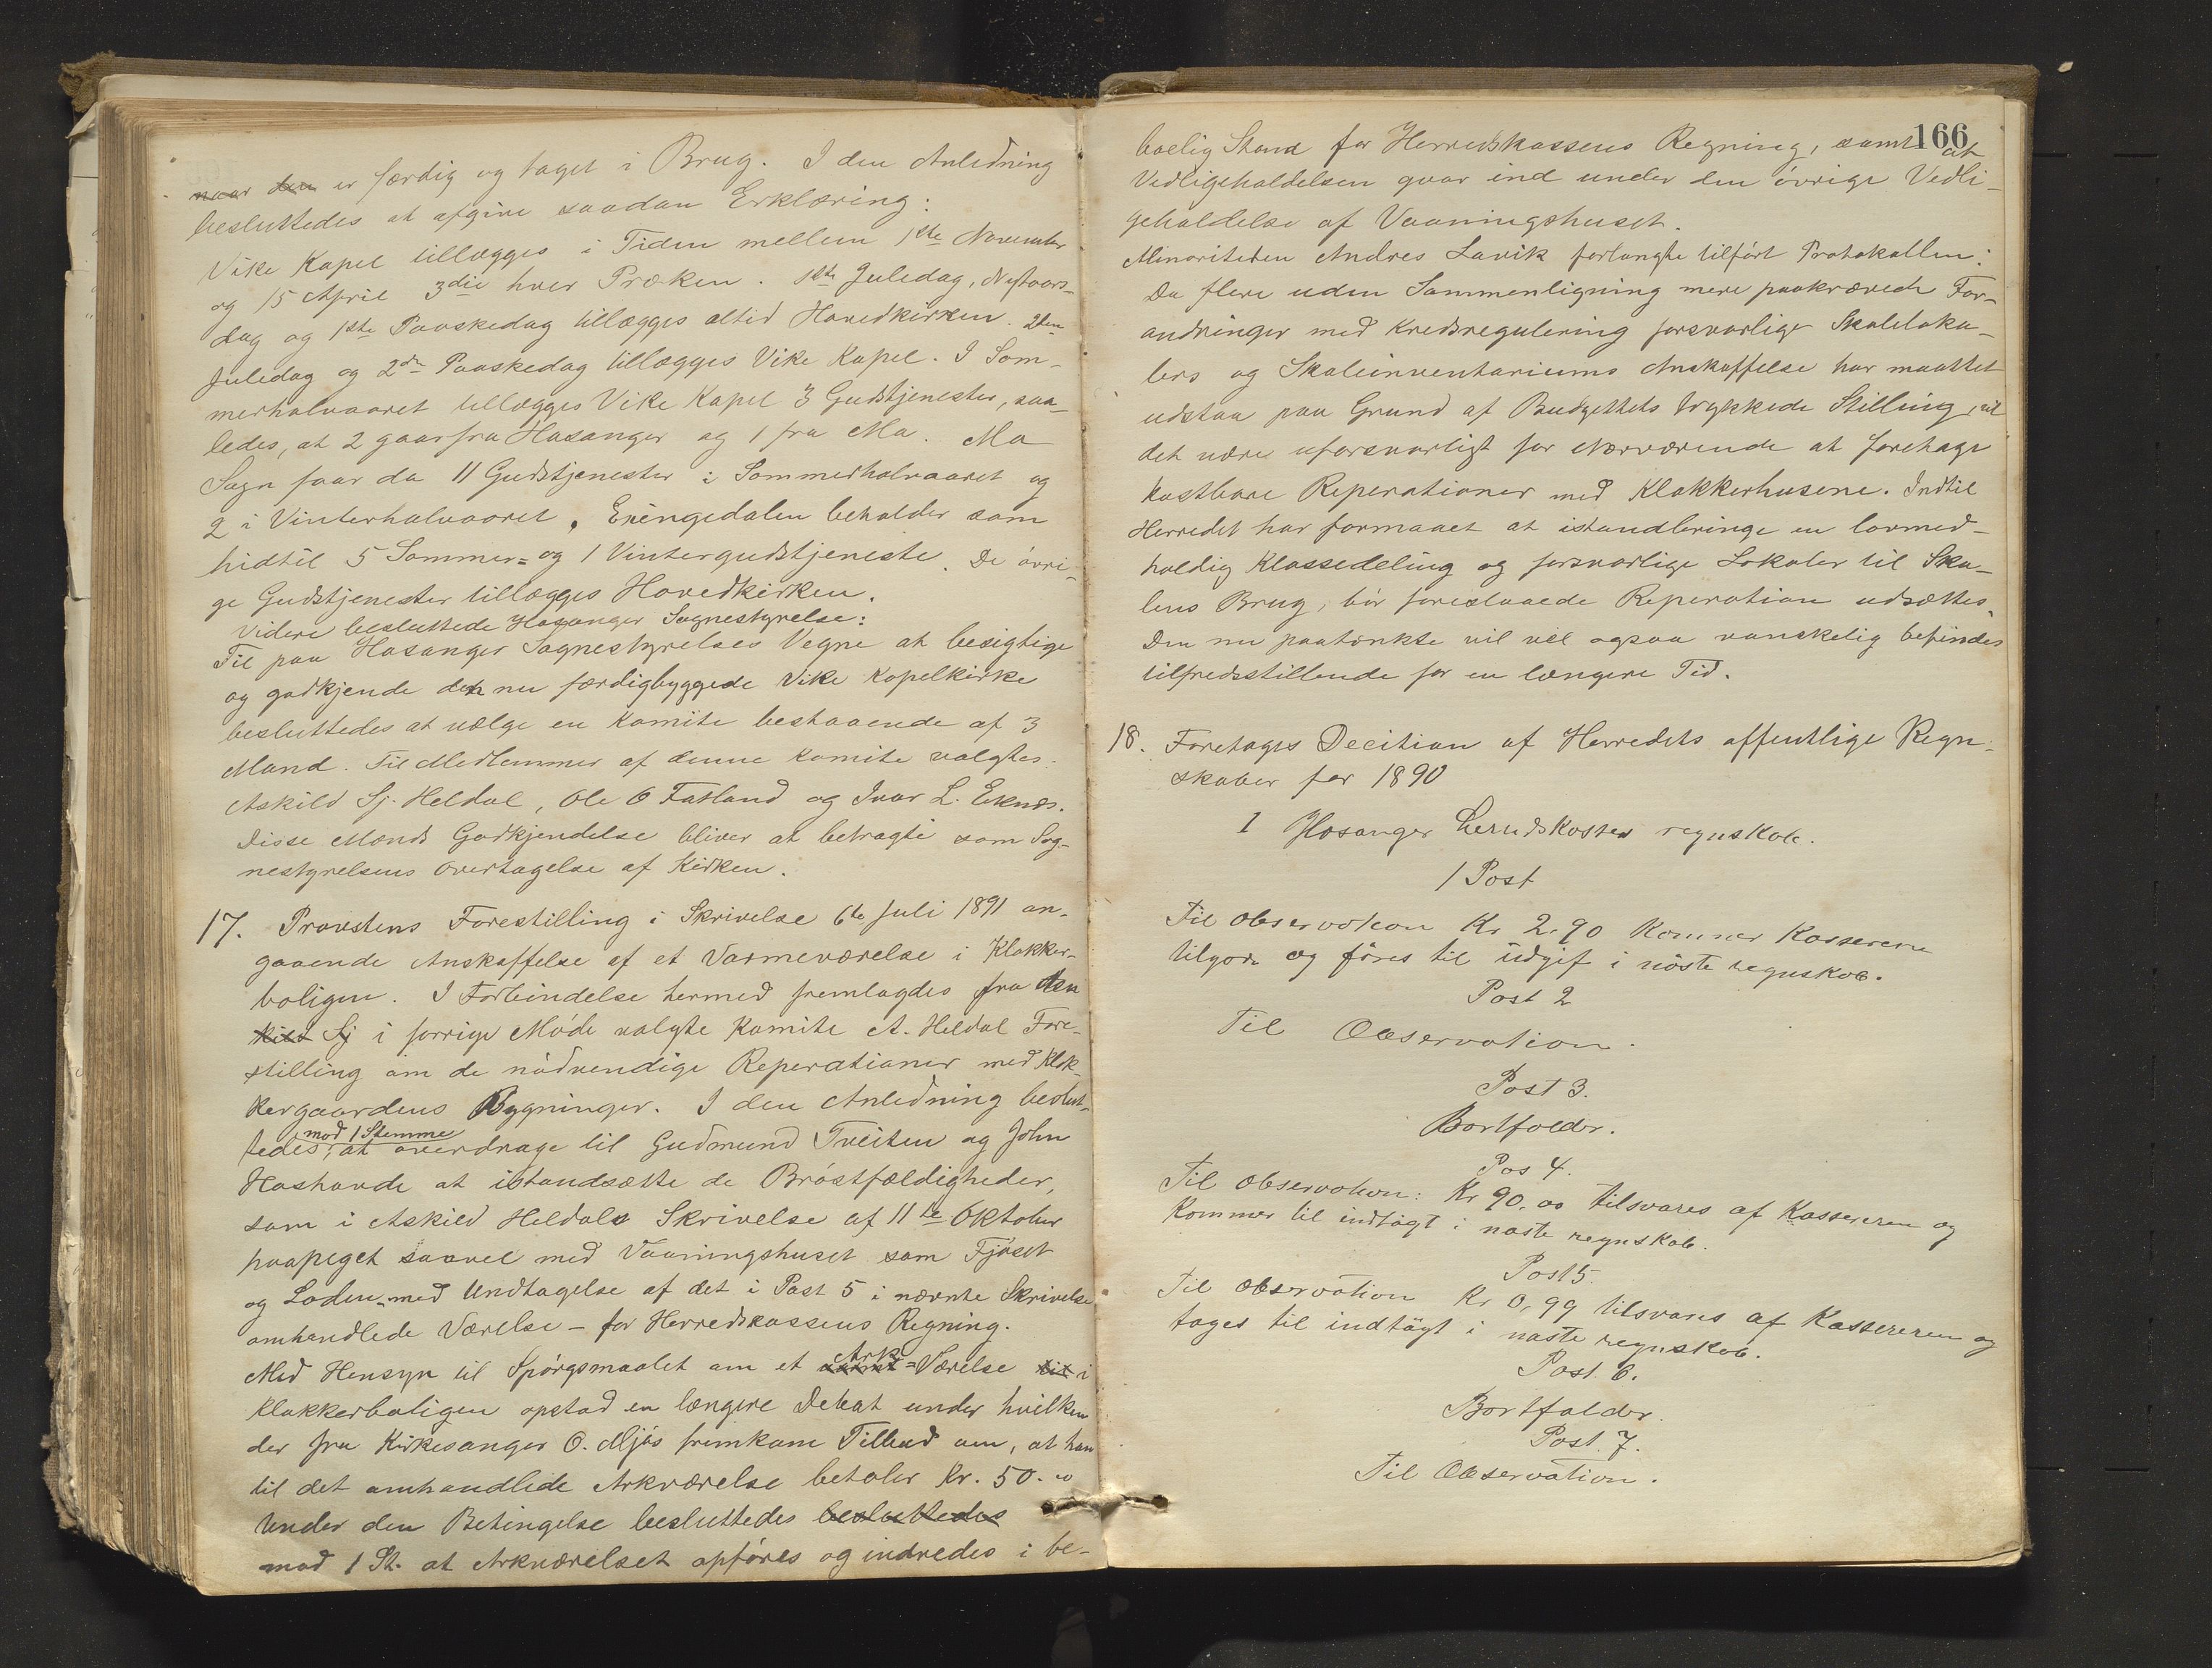 naar den er færdig og taget i Brug. I den Anledning
besluttedes at afgive saadan Erklæring:
Vike Kapel tillægges i Tiden mellem 1ste November
og 15 April 3die hver Præken. 1ste Juledag, Nyttaars-
dag og 1ste Paaskedag tillægges altid Hovedkirken. 2den
Juledag og 2den Paaskedag tillægges Vike Kapel. I Som-
merhalvaaret tillægges Vike Kapel 3 Gudstjenester, saa-
ledes, at 2 gaar fra Hosanger og 1 fra Mo. Mo
Sogn faar da 11 Gudstjenester i Sommerhalvaaret og
2 i Vinterhalvaaret. Exingedalen beholder som
hidtil 5 Sommer= og 1 Vintergudstjeneste. De övri-
ge Gudstjenester tillægges Hovedkirken.
Videre besluttede Hosanger Sognestyrelse:
Til paa Hosanger Sognestyrelses Vegne at besigtige
og godkjende den nu færdigbyggede Vike Kapelkirke
besluttedes at vælge en Komite bestaaende af 3
Mand. Til Medlemmer af denne Komite valgtes:
Askild Sj. Heldal, Ole O Fatland og Ivar L. Eknæs.
Disse Mænds Godkjendelse bliver at betragte som Sog-
nestyrelsens Overtagelse af Kirken.
17. Provstens Forestilling i Skrivelse 6te Juli 1891 an-
gaaende Anskaffelse af et Varmeværelse i Klokker-
boligen. I Forbindelse hermed fremlagdes fra den
kild Sj i forrige Möde valgte Komite A. Heldal Fore-
stilling om de nödvendige Reperationer med Klok-
kergaardens Bygninger. I den Anledning beslut-
mod 1 Stemme
tedes, at overdrage til Gudmund Tveiten og John
Hoshovde at istandsætte de Bröstfældigheder,
som i Askild Heldals Skrivelse af 11te Oktober
paapeget saavel med Vaaningshuset som Fjöset
og Loden – med Undtagelse af det i Post 5 i nævnte Skrivelse
omhandlede Værelse – for Herredskassens Regning.
Ark
Med Hensyn til Spörgsmaalet om et =Værelse til i
Klokkerboligen opstod en længere Debat under hvilken
der fra Kirkesanger O. Mjös fremkom Tilbud om, at han
til det omhandlede Arkværelse betaler Kr. 50.00
Under den Betingelse besluttedes besluttedes
mod 1 St. at Arkværelset opföres og indredes i be-
166
boelig Stand for Herredskassens Regning, samt at
Vedligeholdelsen gaar ind under den övrige Vedli-
geholdelse af Vaaningshuset.
Minoriteten Andres Lavik forlangte tilfört Protokollen:
Da flere uden Sammenligning mere paakrævede For-
andringer med Kredsregulering forsvarlige Skoleloka-
lers og Skoleinventariums Anskaffelse har maattet
udstaa paa Grund af Budgettets trykkede Stilling, vil
det være uforsvarligt for Nærværende at foretage
kostbare Reperationer med Klokkerhusene. Indtil
Herredet har formaaet at istandbringe en lovmed-
holdig Klassedeling og forsvarlige Lokaler til Sko-
lens Brug, bör foreslaaede Reperation udsættes.
Den nu paatænkte vil vel ogsaa vanskelig befindes
tilfredsstillende for en længere Tid.
18. Foretages Decition af Herredets offentlige Regn-
skaber for 1890
1 Hosanger herredskasses regnskab.
1 Post
Til observation Kr 2.90 kommer Kassereren
tilgode og föres til udgif i nöste regnskab.
Post 2
Til Observation.
Post 3.
Bortfalder.
Pos 4.
Til observation: Kr 90.00 tilsvares af Kassereren og
Kommer til indtägt i naste regnskab.
Post 5.
Til observation Kr 0,99 tilsvares af Kassereren og
tages til indtägt i naste regnskab.
Post 6.
Bortfalder.
Post. 7.
Til Observation.